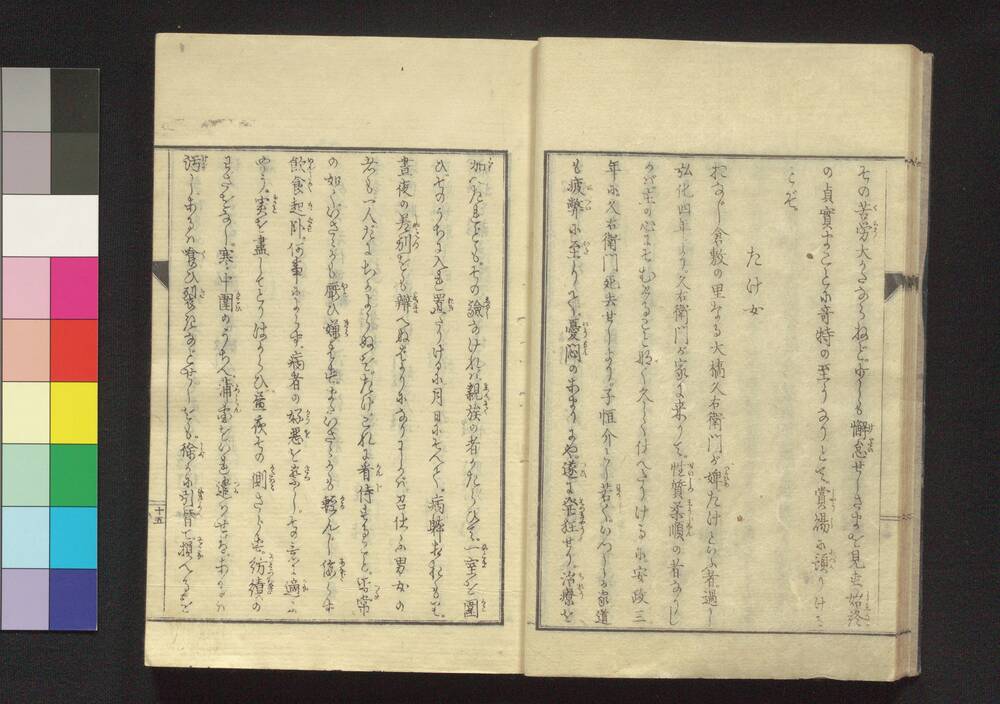 その苦労大かたならねど少しも懈怠せしさまを見せず始終
の貞實なること小奇特の至りなりとて賞湯に預りける
とぞ
たけ女
おなじ倉敷の里なる大橋久右衛門が婢たけといふ者過し
弘化四年より久右衛門が家に来りて性質柔順の者なりし
かば主の心にそむけることなく久しく仕へたりけるに安政三
年に久右衛門死去せしより子恒介いまだ若くいつしか家道
も疲弊に至りしにぞ憂悶のあまりにや遂に発狂せり治療を
加へたれども その驗なければ親族の者かたらひて一室を圍
ひそのうちに入れ置たりけるに月日にそへて病醉おもりもて
晝夜の差別をも辨へぬさまになりもしかば召仕ふ男女の
者も一人だにちかよらぬをたけこれに看侍すること尋常
の如くいさゝかも厭ひ嫌はず またいさゝかも輕んじ侮らず
飲食起臥何事によらず病者の好悪を察しその意に適ふ
やう実を盡してとりはからひ昼夜その側さらず紡績の
わざをなし寒中圍のうちへ蒲団をいれ遣りせるにあるハ
汚しあるハ喰ひ裂きなどせしをも徐かに引替て損へるを
十五